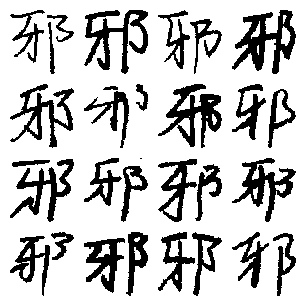 邪邪邪邪
邪邪邪邪
邪邪邪邪
邪邪邪邪